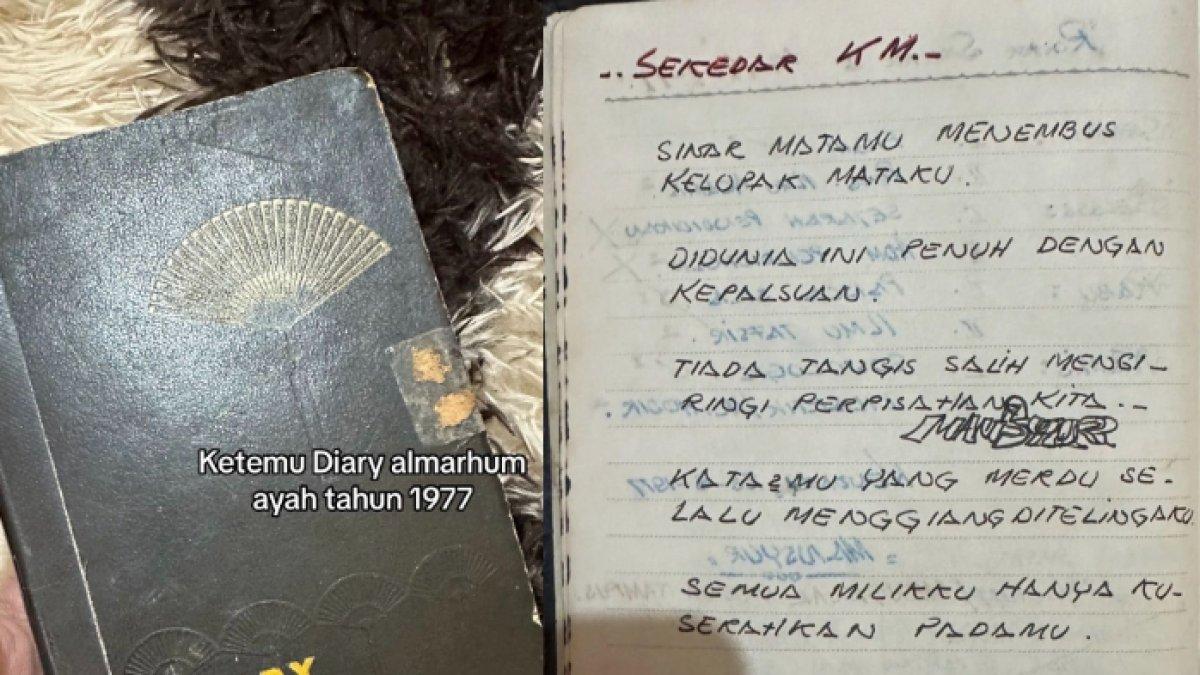 Ketemu Diary almarhum
ayah tahun 1977
.. SEKEDAR KM.-
SINAR MATAMU MENEMBUS
KELOPAK MATAKU.
DIDUNIA INI PENUH DENGAN
KEPALSUAN.
TIADA TANGIS SALIH MENGI-
RINGI PERPISAHAN KITA.-
KATA2MU YANG MERDU SE-
LALU MENGGIANG DITELINGAKU
SEMUA MILIKKU HANYA KU-
SERAHKAN PADAMU.